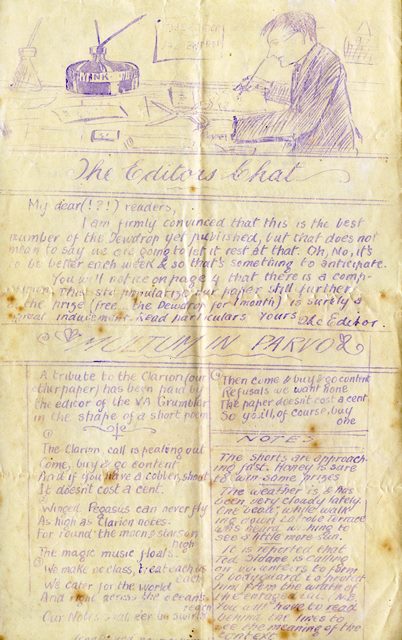 INK
The Editors Chat
My dear(!?!) readers,
I am firmly convinced that this is the best
number of the Dewdrop yet published, but that does not
mean to say we are going to let it rest at that. Oh, No, it's
to be better each week & so that's something to anticipate.
You will notice on page 4 that there is a comp-
This is to popularize our paper still further,
the prize (free the Dewdrop for 1 month) is surely a
great inducement. Read particulars Yours The Editor.
MULTUM IN PARVO
A tribute to the Clarion (our
other paper) has been paid by
the editor of the VA Grumbler
in the shape of a short poem
The Clarion call is pealing out
Come, buy & go content
And if you have a cobler, shout
It doesn't cost a cent.
Winged Pegasus can never fly
As high as Clarion notes.
For round the moon & sun so
high
The magic music floats.
We make no class, treat each as
each
We cater for the world
And right across the oceans
reach
Our Notes
Then come & buy & go content
Refusals we want none
The paper doesnt cost a cent
So you'll, of course, buy
one
NOTES
The Sports are approach-
ing fast. Honey is sure
to win some prizes
The weather is & has
been very cloudy lately
One boy, while walk-
ing round Latrobe Terrace
was heard wishing to
see a little more sun.
It is reported that
Ted Sloane is calling
on volunteers to form
a bodyguard to protect
him from the wrath of
the enraged
You will have to read
behind the lines to
see the meaning of the
context